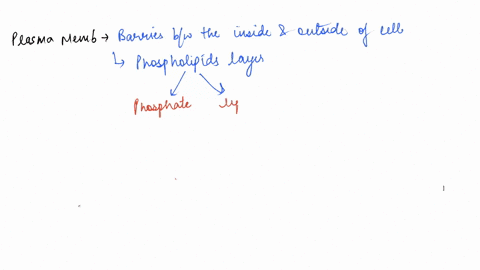 Plasma Memb → Barries b/w the inside & outside of cell
↳ Phospholipids layer
Phosphate ly